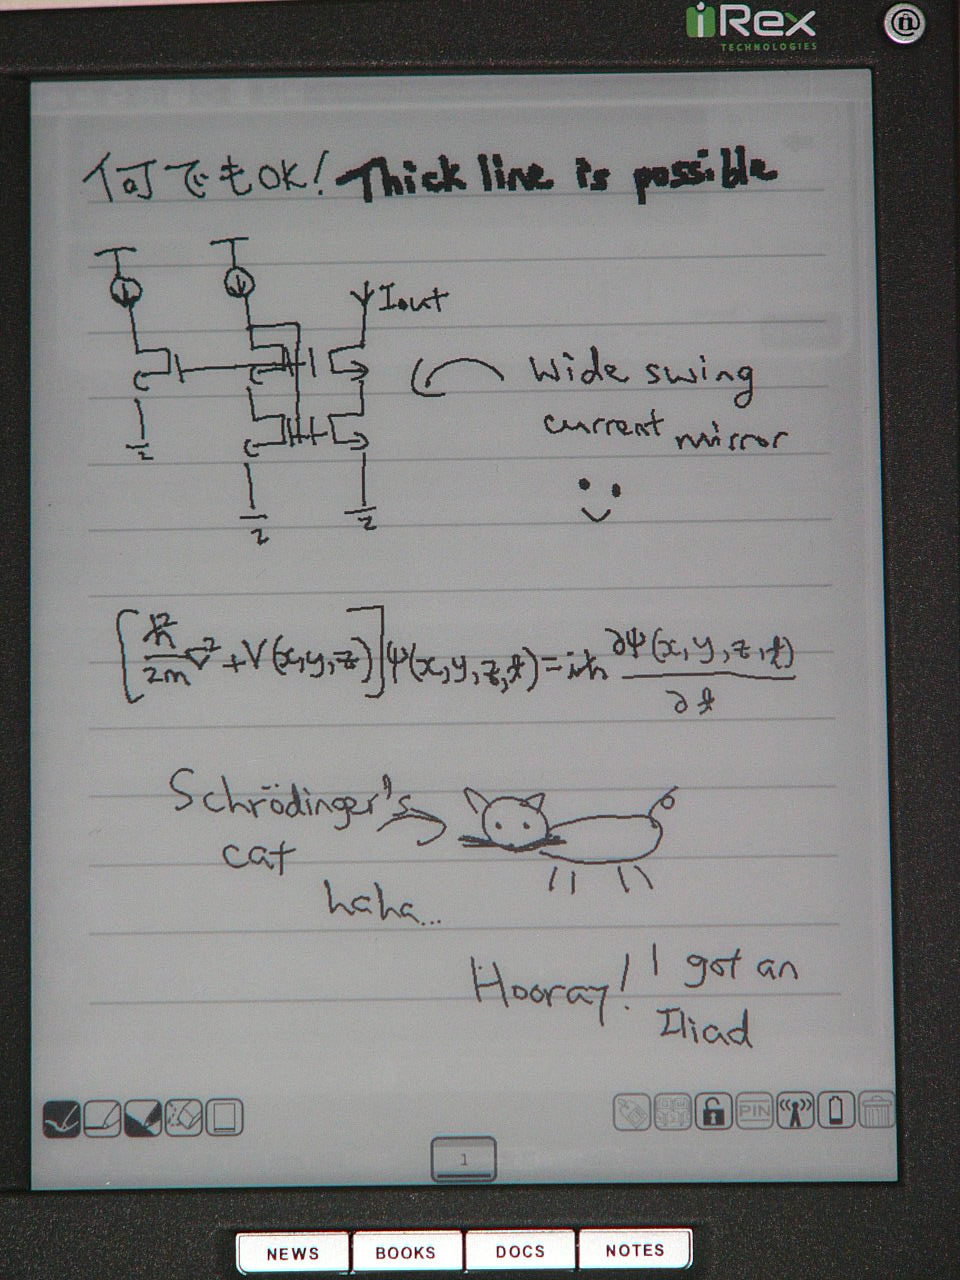 iRex
TECHNOLOGIES
何でもOK! Thick line is possible
Iout
Wide swing
current mirror
[ħ²/2m ∇² + V(x,y,z)] Ψ(x,y,z,t) = iħ ∂Ψ(x,y,z,t)/∂t
Schrödinger's
cat
haha...
Hooray! I got an
Iliad
PIN
1
NEWS BOOKS DOCS NOTES